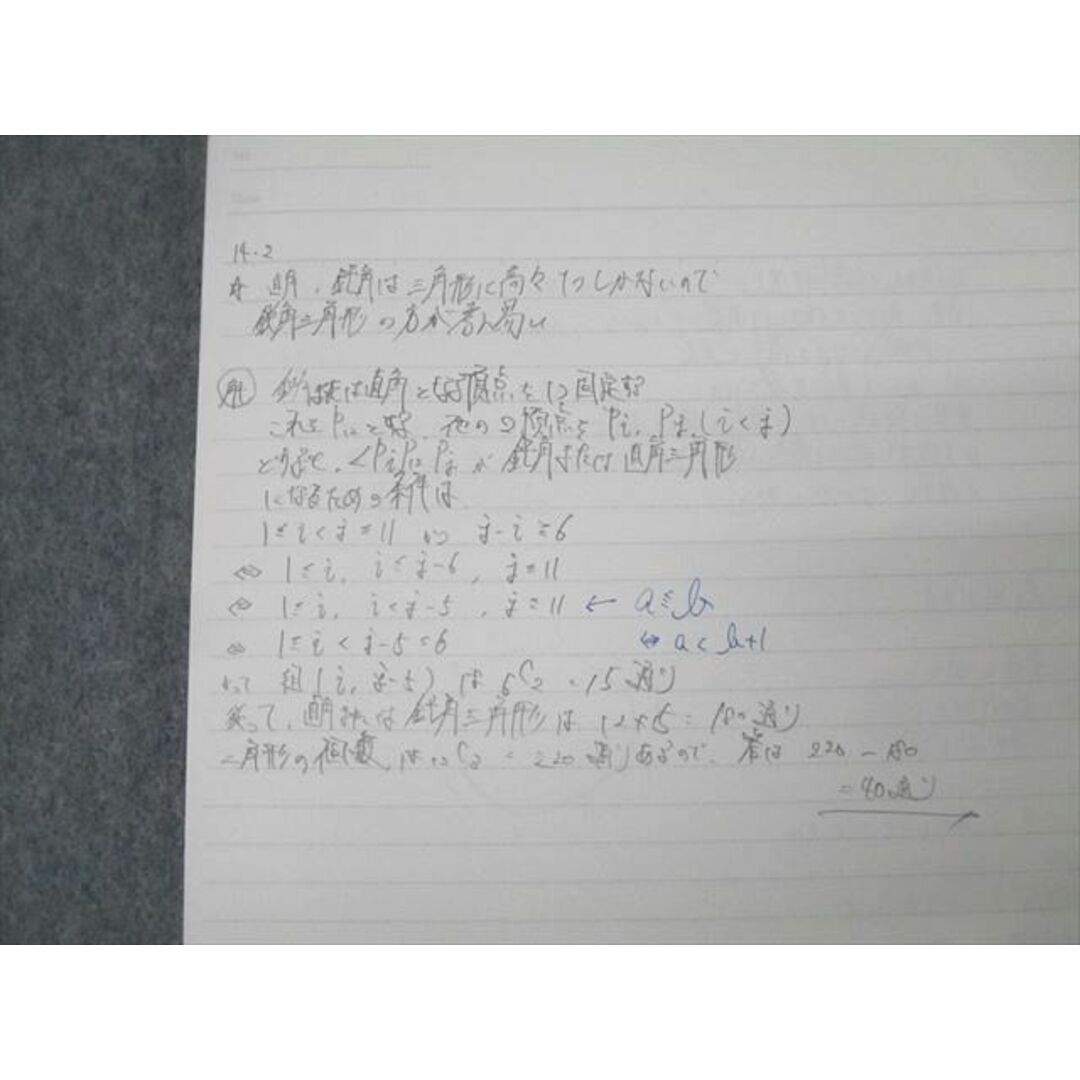 14・2
☆ 直角、鈍角は三角形に高々1つしかないので
鈍角三角形の方が考え易い
鈍角または直角となる頂点を1つ固定する
これをP₁₂とする、他の2頂点をPi, Pj (i<j)
とすると、∠PiP₁₂Pjが鈍角または直角三角形
になるための条件は
1≦i<j≦11 かつ j-i≧6
⇔ 1≦i, i≦j-6, j≦11
⇔ 1≦i, i<j-5, j≦11 ← a≦b
⇔ 1≦i<j-5≦6 ⇔ a<b+1
よって 組(i, j-5)は ₆C₂=15通り
従って、直角または鈍角三角形は 12×15=180通り
三角形の個数は ₁₂C₃=220通りあるので、答は 220-180
=40通り